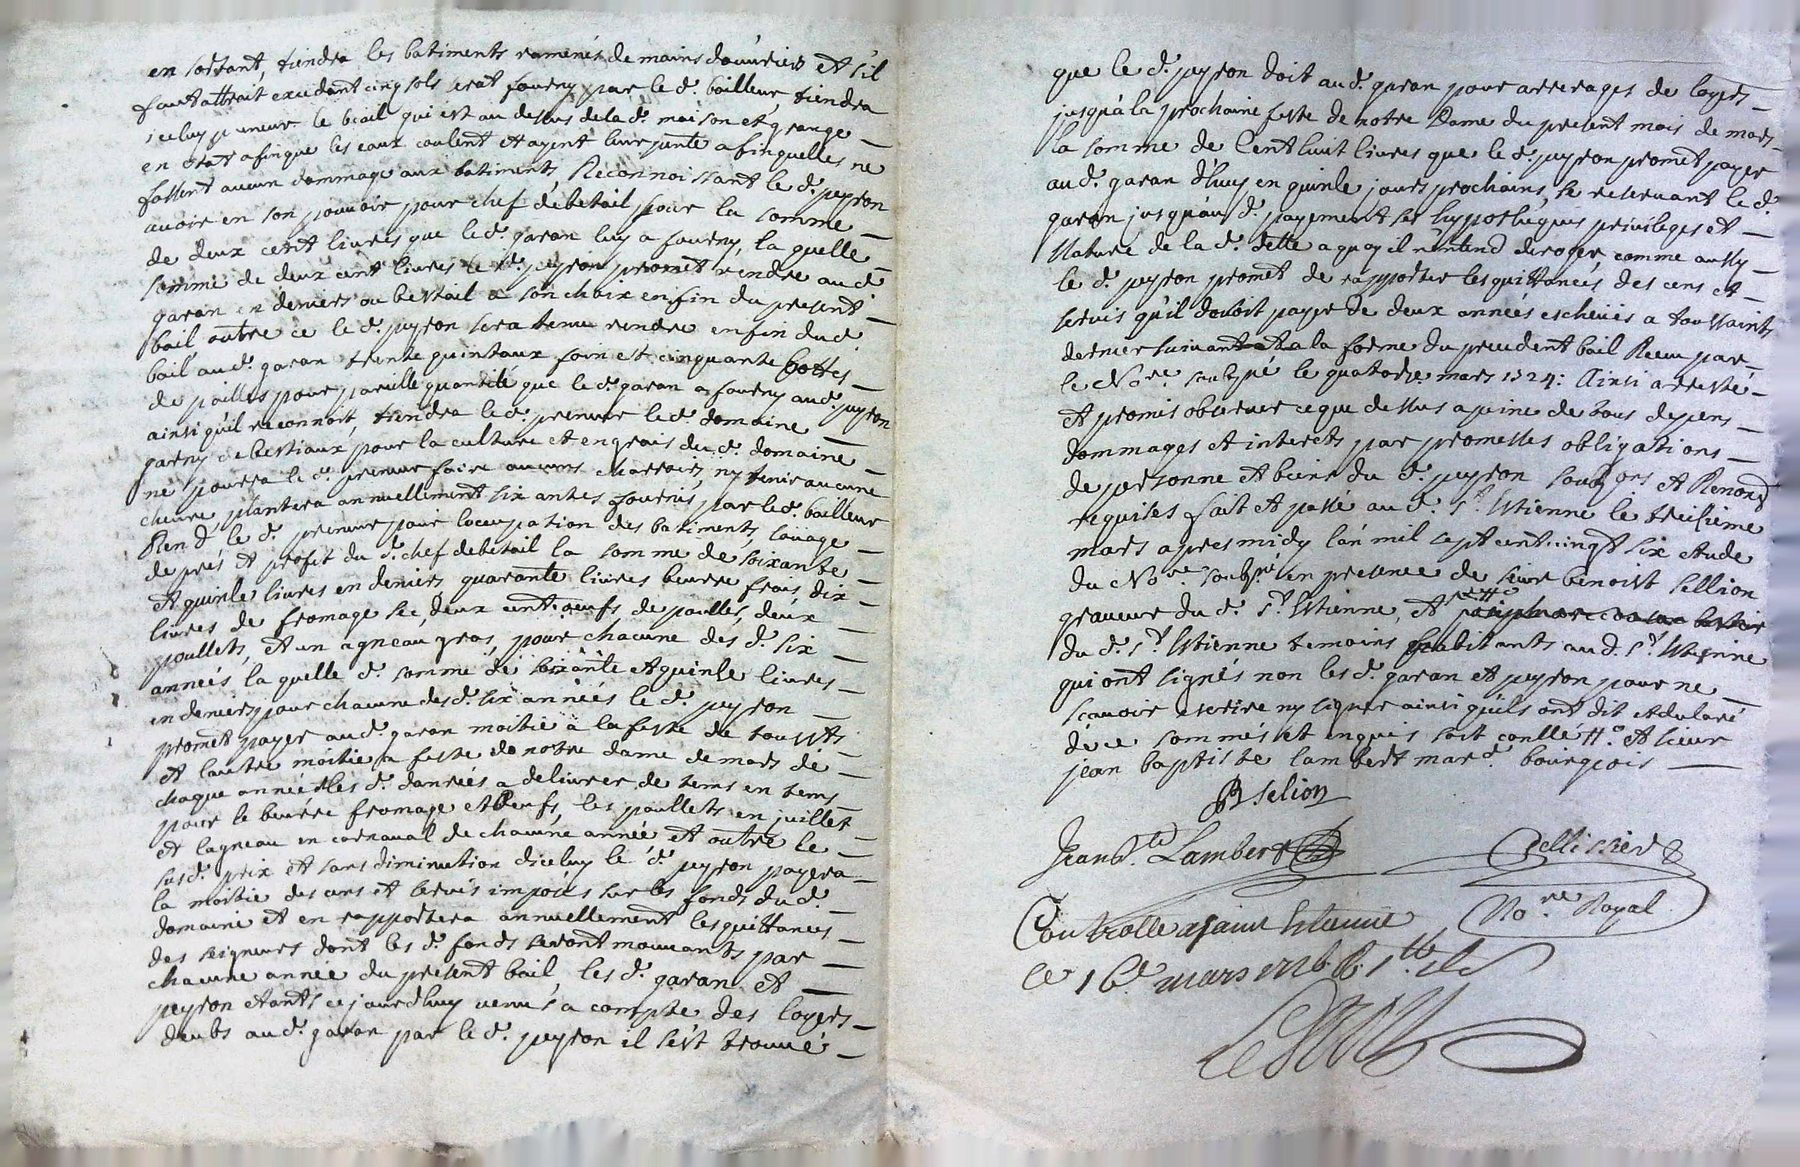 en sortant, tiendra les batiments ramenés de mains d'ouvriers et s'il
faut attrait excedant cinq sols serat fourny par le d. bailleur, tiendra
iceluy preneur le biail qui est au dessus de la d. maison et grange
en état afin que les eaux coulent et ayent leur pante afin quelles ne
fassent aucun dommage aux batiments Reconnoissant le d. peyron
avoir en son pouvoir pour chef de betail pour la somme
de deux cent livres que le d. garan luy a fourny, la quelle
somme de deux cent livres le d. peyron promet rendre au d.
garan en deniers ou bestail a son choix en fin du present
bail outre ce le d. peyron sera tenu rendre en fin du d.
bail au d. garan trente quintaux foin et cinquante bottes
de pailles pour pareille quantité que le d. garan a fourny au d. peyron
ainsi qu'il reconnoit, tiendra le d. preneur le d. domaine
garny de bestiaux pour la culture et engrais du d. domaine
ne pourra le d. preneur faire aucuns charrois, ny tenir aucune
chevre, plantera annuellement six antes fournis par le d. bailleur
Rend le d. preneur pour l'occupation des batiments, louage
de prés et profit du d. chef de betail la somme de soixante
et quinze livres en deniers quarante livres beurre frais dix
livres de fromage sec, deux cent oeufs de poulles, deux
poullets, et un agneau gras, pour chacune des d. six
années la quelle d. somme de soixante et quinze livres
en deniers pour chacune des d. six années le d. peyron
promet payer au d. garan moitié à la feste de toussts
et l'autre moitié a feste de notre dame de mars de
chaque année les d. danrées a delivrer de tems en tems
pour le beurre fromage et oeufs, les poullets en juillet
et l'agneau en carnaval de chacune année et outre le
susd. prix et sans diminution d'iceluy le d. peyron payera
la moitié des cens et servis imposés sur les fonds du d.
domaine et en rapportera annuellement les quittances
des seigneurs dont les d. fonds seront mouvants par
chacune année du present bail les d. garan et
peyron etants ce jourd'huy venus a compte des loyers
deubs au d. garan par le d. peyron il s'est trouvé
que le d. peyron doit au d. garan pour arrerages de loyers
jusqu'à la prochaine feste de notre Dame du present mois de mars
la somme de Cent huit livres que le d. peyron promet payer
au d. garan d'huy en quinze jours prochains, se reservant le d.
garan jusqu'au d. payement ses hypotheques privileges et
Nature de la d. dette a quoy il n'entend deroger, comme aussy
le d. peyron promet de rapporter les quittances des cens et
servis qu'il devoit payer de deux années escheües a toussaints
dernier suivant a la forme du precedent bail Receu par
le Nore. soubzné le quatorze mars 1724: Ainsi arresté
et promis observer ce que dessus a peine de tous depens
dommages et interets par promesses obligations
de personne et biens du d. peyron soubzons et Renond
requises fait et passé au d. St. Estienne le treizieme
mars apres midy l'an mil sept cent vingt six etude
du Nore. soubzné en presence de sieur benoist Sellion
graveur du d. St. Estienne, et
du d. St. Estienne temoins habitants au d. St. Estienne
qui ont signés non les d. garan et peyron pour ne
sçavoir escrire ny signer ainsi qu'ils ont dit et declaré
de ce sommés et enquis soit conlle tto. et sieur
jean baptiste lambert mard. bourgeois
B selion
Jean B.te Lambert
Pellissier
No.re Royal
Controlle a saint Etienne
le 16e mars 1726